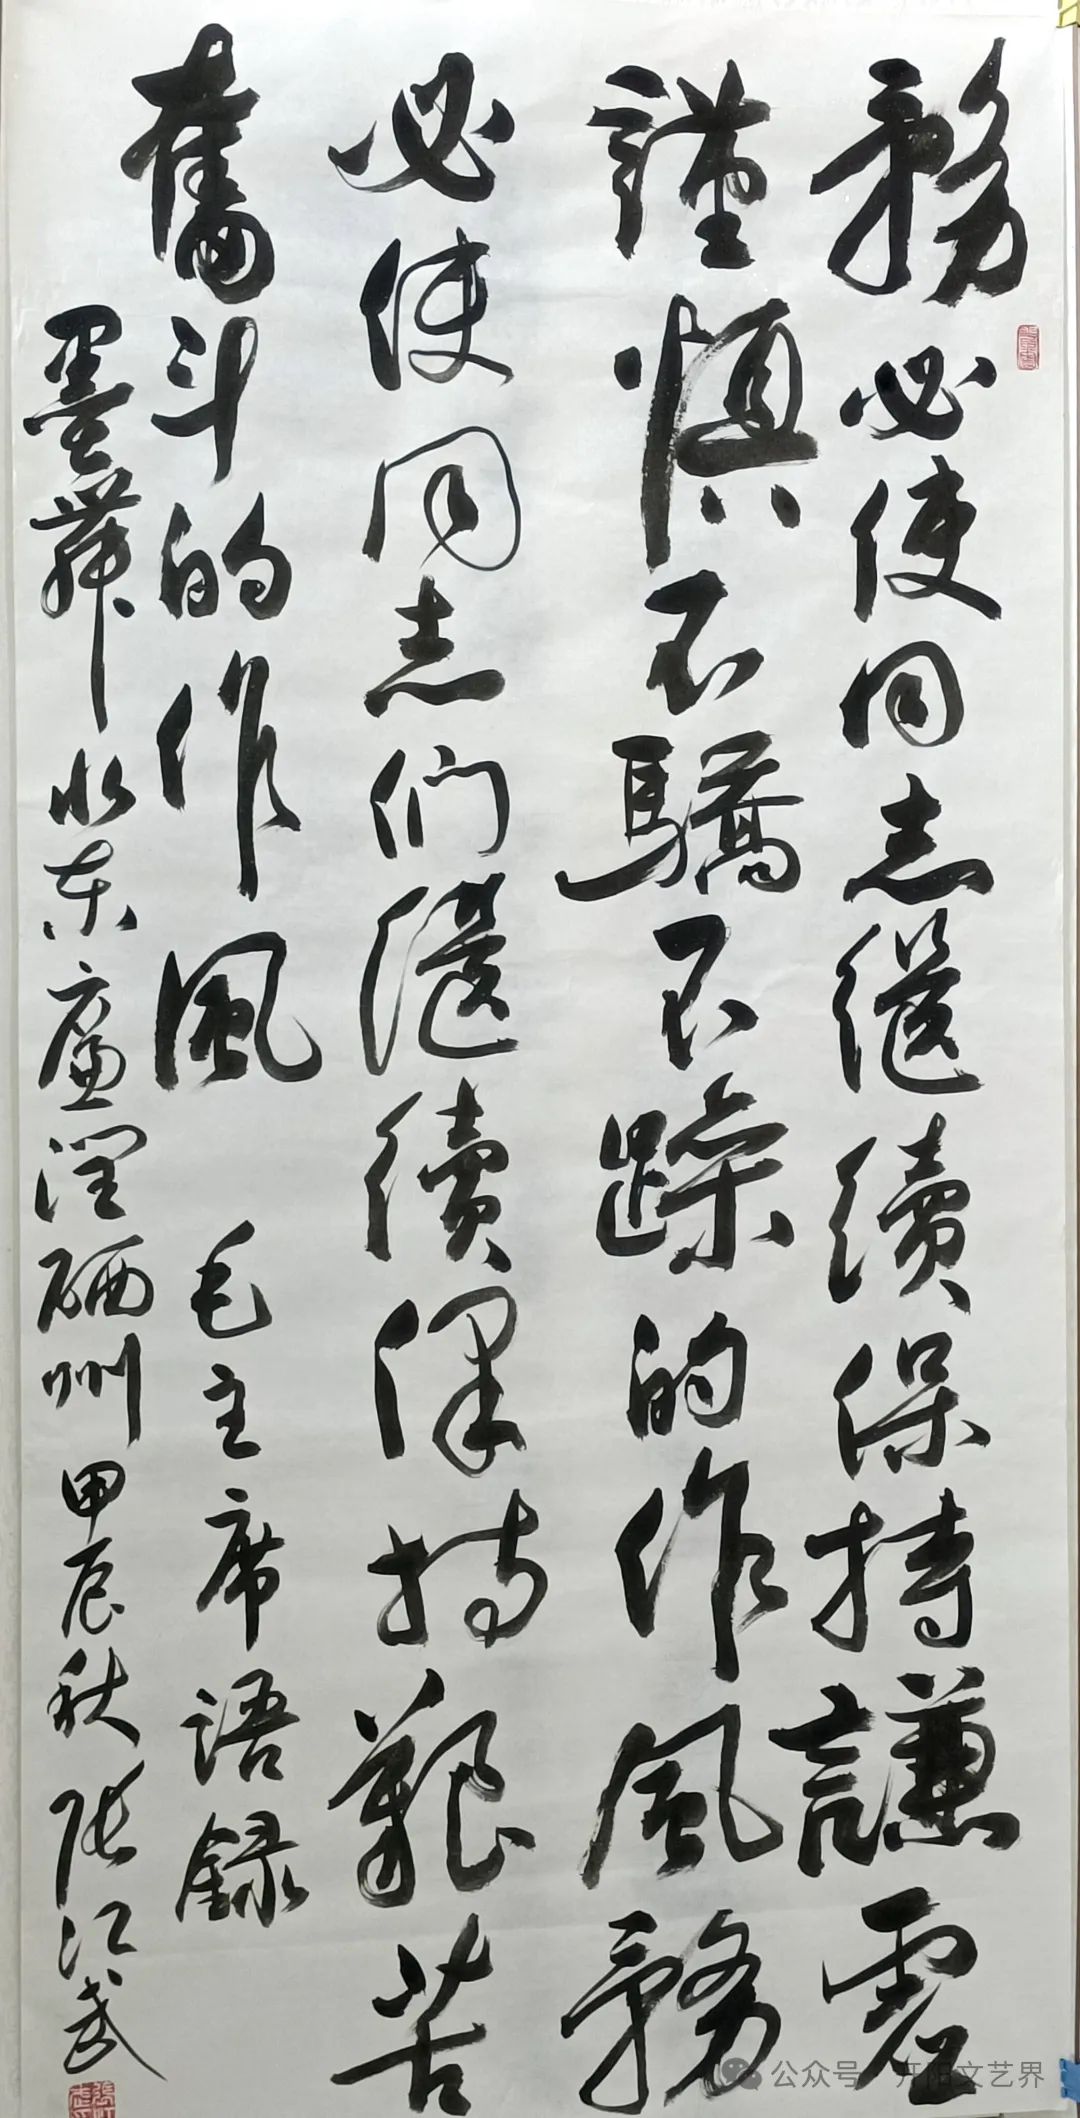 務必使同志继續保持謙虚
謹慎不驕不躁的作風務
必使同志们继續保持艱苦
奮斗的作風 毛主席語録
墨舞水东廉润硒州甲辰秋張江武
公众号 · 开阳文艺界